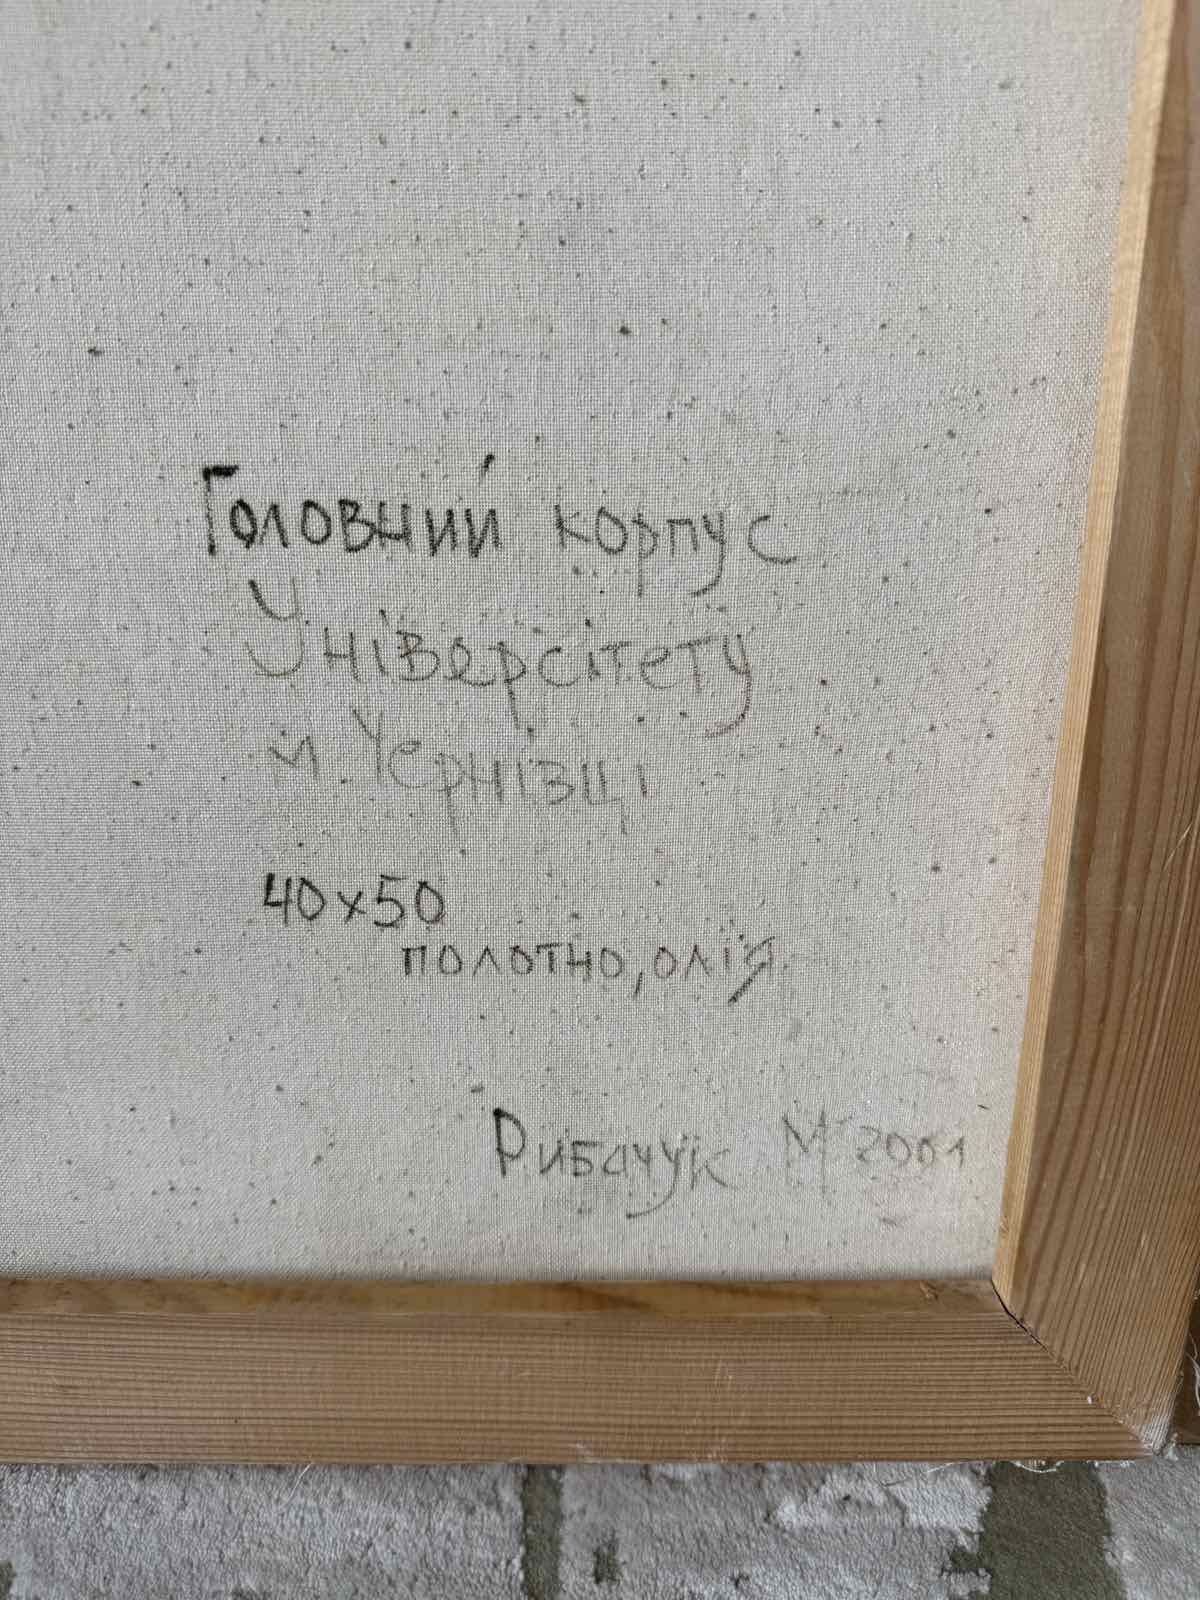 Головний корпус
Університету
м. Чернівці
40х50
полотно, олія
Рибачук М 2001